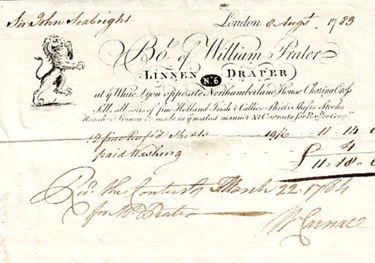 Sir John Seabright London 8 Augst. 1783
Bo.t of William Prater
LINNEN No. 6 DRAPER
at ye White Lyon opposite Northumberland House Charing Cross
Sells all of fine Holland Irish & Callico Shirts Shifts Stocks
made in ye neatest manner NB Contracts for
12 fine Shirts 19/6 11 - 14 - 0
paid Washing 4
£ 11 - 18 - 0
Recd. the Contents March 22. 1784
for Mr Prater
W Carnall